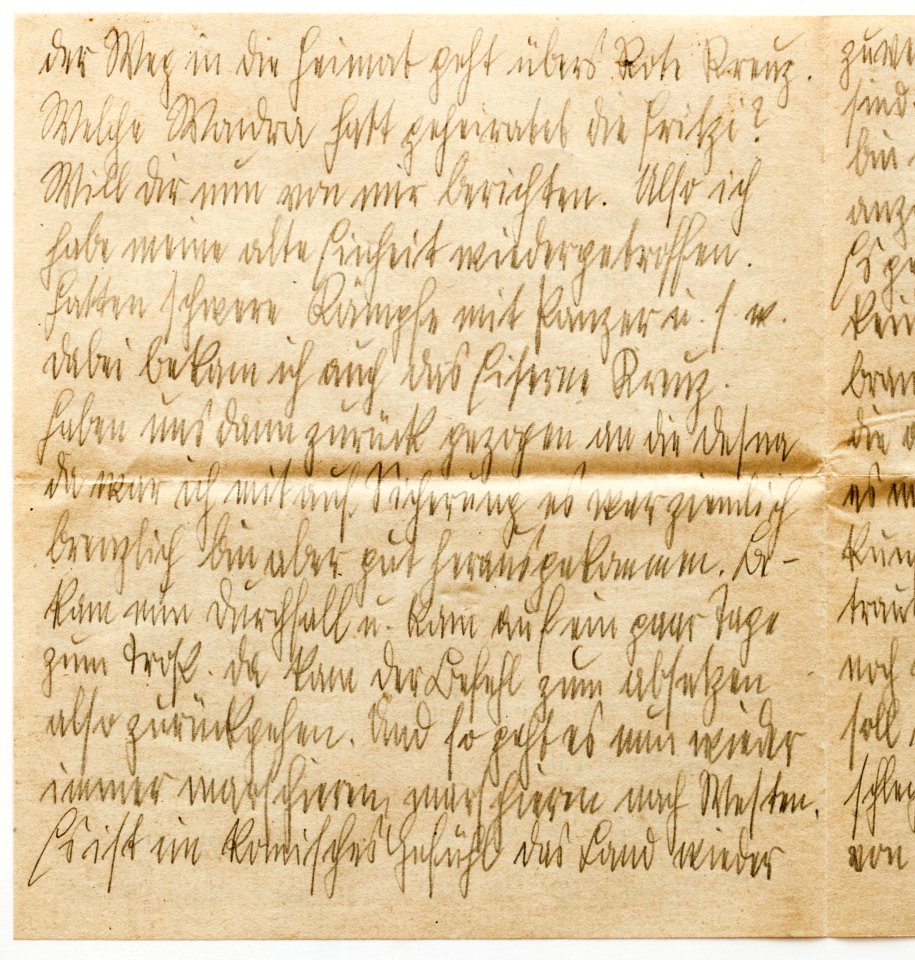 der Weg in die Heimat geht übers Rote Kreuz.
Welche Wandra hatt geheiratet die Fritzi?
Will dir nun von mir berichten. Also ich
habe meine alte Einheit wiedergetroffen.
Hatten schwere Kämpfe mit Panzer u. s. w.
dabei bekam ich auch das Eiserne Kreuz.
Haben uns dann zurück gezogen an die Desna
da war ich mit auf Sicherung es war ziemlich
brenzlich bin aber gut herausgekommen. Be-
kam nun Durchfall u. kam auf ein paar Tage
zum Troß. Da kam der Befehl zum absetzen
also zurückgehen. Und so geht es nun wieder
immer marschieren, marschieren nach Westen.
Es ist ein komisches Gefühl das Land wieder
zuwe
sind
bin
anz
Es ge
kein
bran
die
es
kun
trau
noch
soll
schle
von